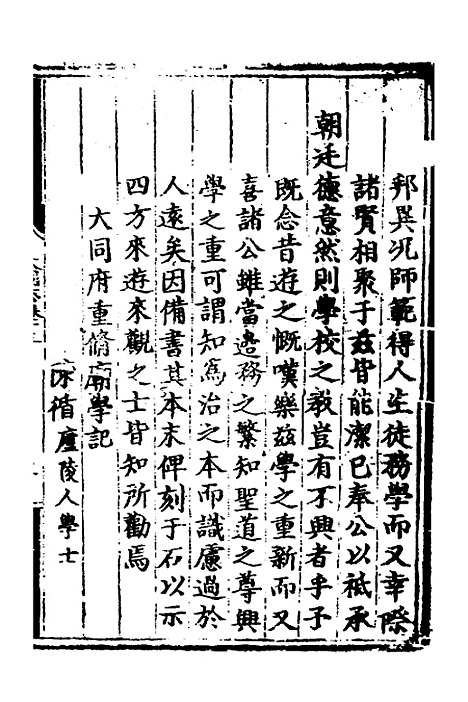 邦異况師範得人生徒務學而又幸際
諸賢相聚于茲皆能潔己奉公以祗承
朝廷德意然則學校之教豈有不興者乎予
既念昔遊之慨嘆樂茲學之重新而又
喜諸公雖當邊務之繁知聖道之尊興
學之重可謂知為治之本而識慮過於
人遠矣因備書其本末俾刻于石以示
四方來遊來觀之士皆知所勸焉
大同府重脩廟學記
循廬陵人學士